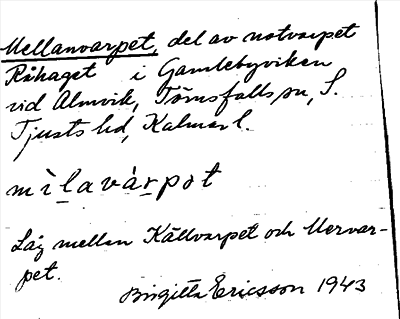 Mellanvarpet, del av notvarpet
Råhaget i Gamlebyviken
vid Almvik, Törnsfalls sn, S.
Tjusts hd, Kalmar l.
mìlavàrpot
Låg mellan Källvarpet och Mervar-
pet.
Birgitta Ericsson 1943